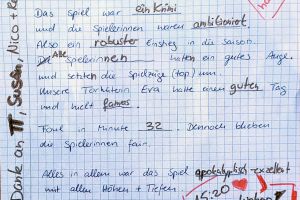 Das Spiel war ein Krimi
und die Spielerinnen waren ambitioniert
Also ein robuster Einstieg in die Saison.
Die Alle Spielerinnen hatten ein gutes Auge
und setzten die Spielzüge (top) um.
Unsere Torhüterin Eva hatte einen guten Tag
und hielt famos.
Foul in Minute 32. Dennoch blieben
die Spielerinnen fair.
Alles in allem war das Spiel apokalyptisch-exzellent
mit allen Höhen + Tiefen.
15:20
Danke an TT, Susan, Nico +